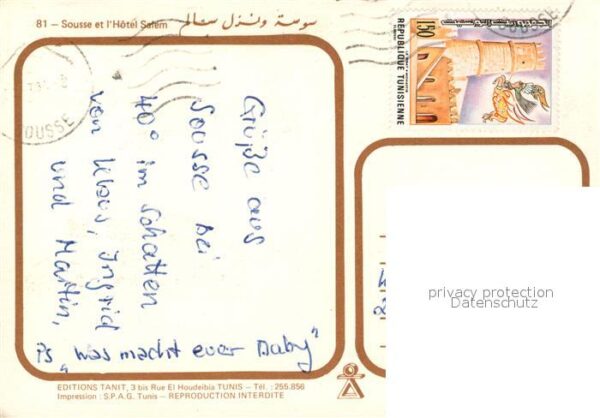 81 – Sousse et l'Hôtel Salem سوسة ونزل سالم
REPUBLIQUE TUNISIENNE
150
الجمهورية التونسية
SOUSSE
OUSSE
Grüße aus
Sousse bei
40° im Schatten
von Klaus, Ingrid
und Martin,
Ps „Was macht euer Baby"
privacy protection
Datenschutz
EDITIONS TANIT, 3 bis Rue El Houdeibia TUNIS – Tél. : 255.856
Impression : S.P.A.G. Tunis – REPRODUCTION INTERDITE